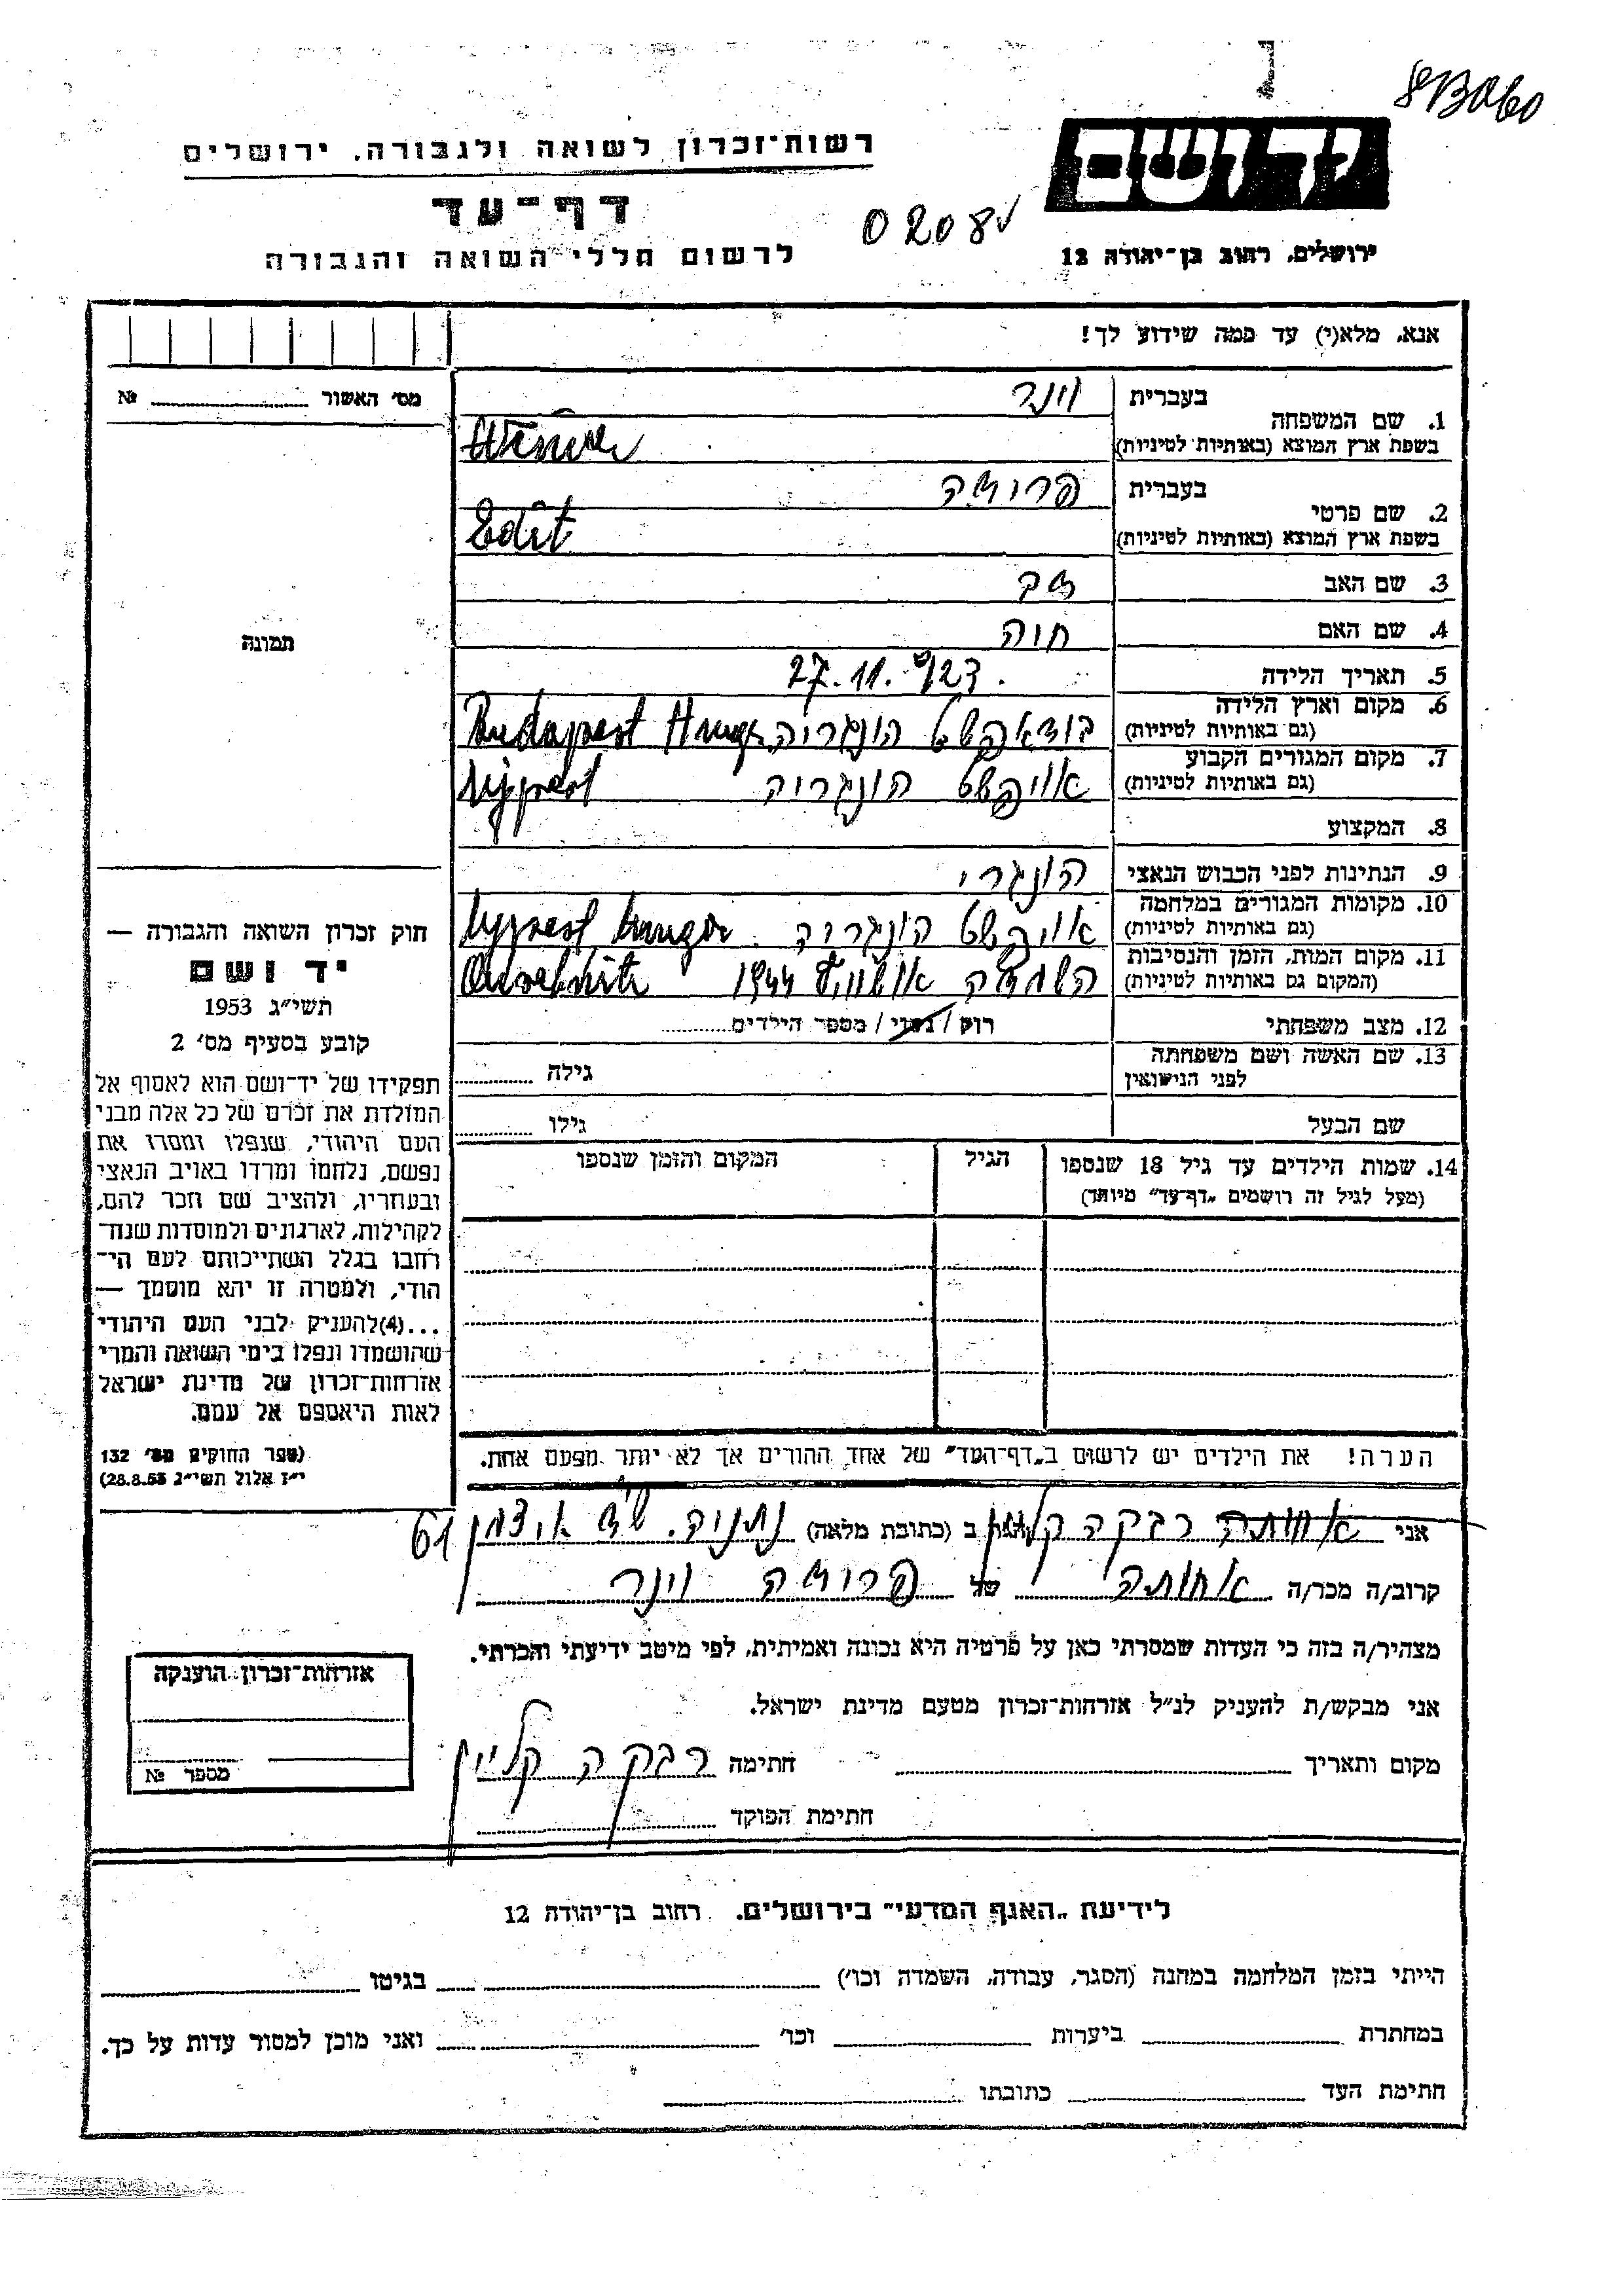 8B060
רשות־זכרון לשואה ולגבורה, ירושלים
דף־עד
לרשום חללי השואה והגבורה
0208
ירושלים, רחוב בן־יהודה 12
אנא, מלא(י) עד כמה שידוע לך!
מס׳ האשור № 
1. שם המשפחה
בעברית וינר
בשפת ארץ המוצא (באותיות לטיניות)
2. שם פרטי
בעברית פרומה
בשפת ארץ המוצא (באותיות לטיניות) Edit
3. שם האב זב
4. שם האם חוה
5. תאריך הלידה 27.11.923
6. מקום וארץ הלידה
(גם באותיות לטיניות) בודאפשט הונגריה Budapest
7. מקום המגורים הקבוע
(גם באותיות לטיניות) אויפשט הונגריה Ujpest
8. המקצוע
9. הנתינות לפני הכבוש הנאצי הונגרי
10. מקומות המגורים במלחמה
(גם באותיות לטיניות) אויפשט הונגריה Ujpest
11. מקום המות, הזמן והנסיבות
(המקום גם באותיות לטיניות) השמדה אושוויץ 1944
12. מצב משפחתי רווק / נשוי / מספר הילדים
13. שם האשה ושם משפחתה
לפני הנישואין גילה
שם הבעל גילו
14. שמות הילדים עד גיל 18 שנספו הגיל המקום והזמן שנספו
(מעל לגיל זה רושמים „דף־עד” מיוחד)
הערה! את הילדים יש לרשום ב„דף־העד” של אחד ההורים אך לא יותר מפעם אחת.
תמונה
חוק זכרון השואה והגבורה —
יד ושם
תשי״ג 1953
קובע בסעיף מס׳ 2
תפקידו של יד־ושם הוא לאסוף אל
המולדת את זכרם של כל אלה מבני
העם היהודי, שנפלו ומסרו את
נפשם, נלחמו ומרדו באויב הנאצי
ובעוזריו, ולהציב שם וזכר להם,
לקהילות, לארגונים ולמוסדות שנח־
רבו בגלל השתייכותם לעם הי־
הודי, ולמטרה זו יהא מוסמך —
...(4)להעניק לבני העם היהודי
שהושמדו ונפלו בימי השואה והמרי
אזרחות־זכרון של מדינת ישראל
לאות היאספם אל עמם.
(ספר החוקים מס׳ 132
י״ז אלול תשי״ג 28.8.53)
אני אחותה רבקה קליין הגר ב (כתובת מלאה) נתניה. 61
קרוב/ה מכר/ה אחותה של פרומה וינר
מצהיר/ה בזה כי העדות שמסרתי כאן על פרטיה היא נכונה ואמיתית, לפי מיטב ידיעתי והכרתי.
אני מבקש/ת להעניק לנ״ל אזרחות־זכרון מטעם מדינת ישראל.
מקום ותאריך חתימה רבקה קליין
חתימת הפוקד
אזרחות־זכרון הוענקה
מספר №
לידיעת „האגף המדעי” בירושלים, רחוב בן־יהודה 12
הייתי בזמן המלחמה במחנה (הסגר, עבודה, השמדה וכו׳) בגיטו
במחתרת ביערות וכו׳ ואני מוכן למסור עדות על כך.
חתימת העד כתובתו